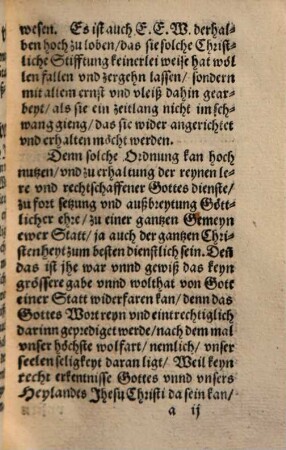 wesen. Es ist auch E. E. W. derhal-
ben hoch zu loben/ das sie solche Christ-
liche Stifftung keinerlei weise hat wöl
len fallen vnd zergehn lassen/ sondern
mit allem ernst vnd vleiß dahin gear-
beyt/ als sie ein zeitlang nicht im sch-
wang gieng/ das sie wider angerichtet
vnd erhalten möcht werden.
Denn solche Ordnung kan hoch
nutzen/ vnd zu erhaltung der reynen le-
re vnd rechtschaffener Gottes dienste/
zu fort setzung vnd außbreytung Gött-
licher ehre/ zu einer gantzen Gemeyn
ewer Statt/ ja auch der gantzen Chri-
stenheyt zum besten dienstlich sein. Deñ
das ist jhe war vnnd gewiß das keyn
grössere gabe vnnd wolthat von Gott
einer Statt widerfaren kan/ denn das
Gottes Wort reyn vnd eintrechtiglich
darinn geprediget werde/ nach dem mal
vnser höchste wolfart/ nemlich/ vnser
seelen seligkeyt daran ligt/ Weil keyn
recht erkentnisse Gottes vnnd vnsers
Heylandes Jhesu Christi da sein kan/
a ij